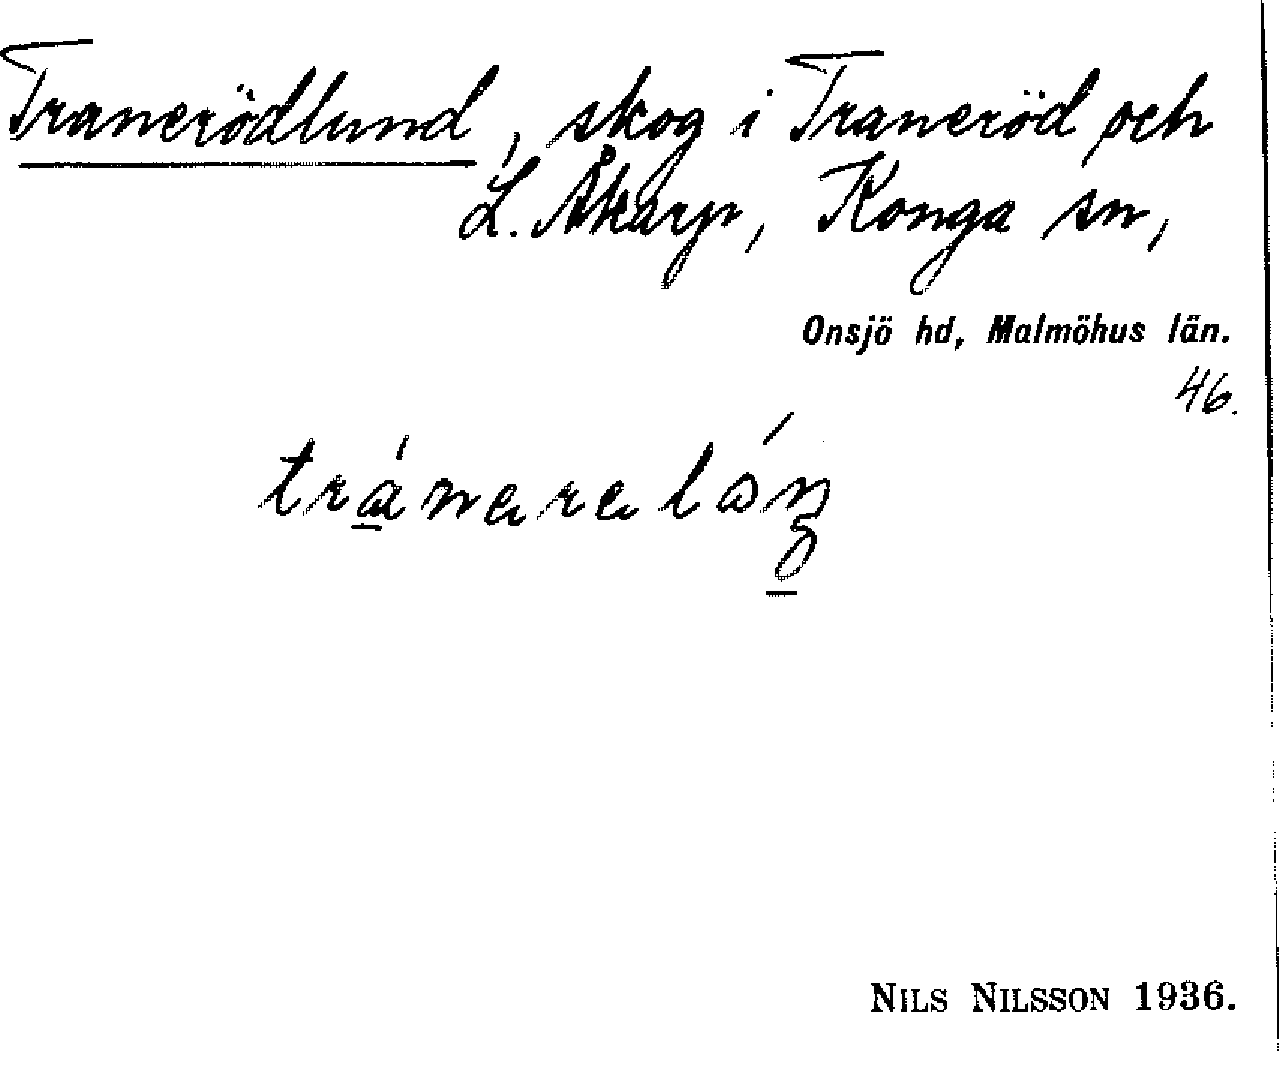 Tranerödlund, skog i Traneröd och
L. Åkarp, Konga sn,
Onsjö hd, Malmöhus län.
46.
NILS NILSSON 1936.